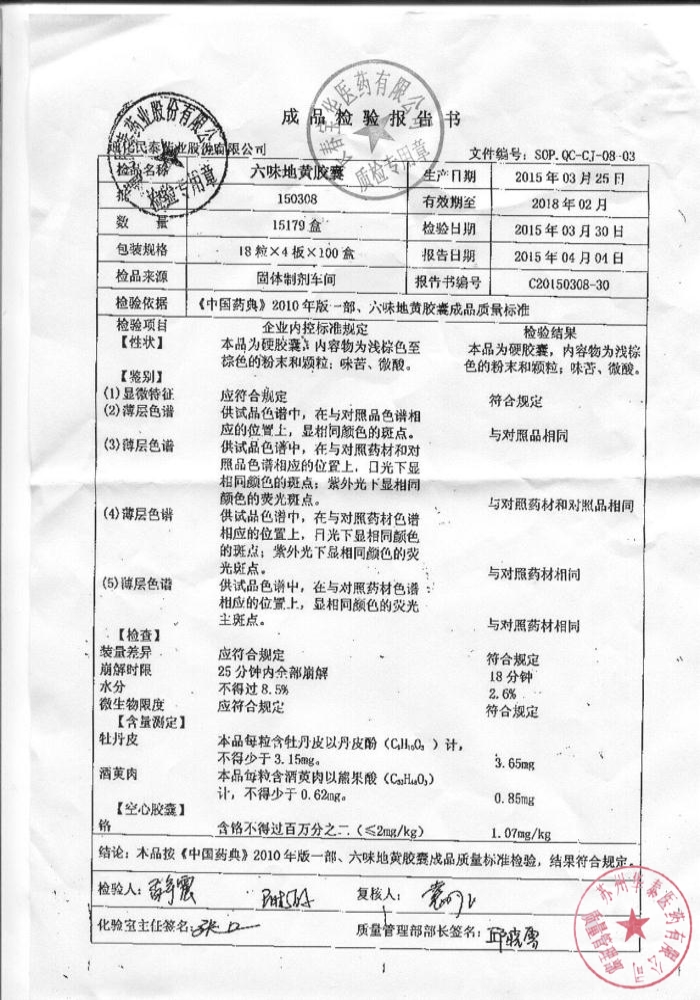 成品检验报告书
通化民泰药业股份有限公司 文件编号：SOP.QC-CJ-08-03
检品名称 六味地黄胶囊 生产日期 2015年03月25日
批 150308 有效期至 2018年02月
数 量 15179盒 检验日期 2015年03月30日
包装规格 18粒×4板×100盒 报告日期 2015年04月04日
检品来源 固体制剂车间 报告书编号 C20150308-30
检验依据 《中国药典》2010年版一部、六味地黄胶囊成品质量标准
检验项目 企业内控标准规定 检验结果
【性状】 本品为硬胶囊，内容物为浅棕色至 本品为硬胶囊，内容物为浅棕
棕色的粉末和颗粒；味苦、微酸。 色的粉末和颗粒；味苦、微酸。
【鉴别】
(1)显微特征 应符合规定 符合规定
(2)薄层色谱 供试品色谱中，在与对照品色谱相
应的位置上，显相同颜色的斑点。 与对照品相同
(3)薄层色谱 供试品色谱中，在与对照药材和对
照品色谱相应的位置上，日光下显
相同颜色的斑点；紫外光下显相同
颜色的荧光斑点。 与对照药材和对照品相同
(4)薄层色谱 供试品色谱中，在与对照药材色谱
相应的位置上，日光下显相同颜色
的斑点；紫外光下显相同颜色的荧
光斑点。 与对照药材相同
(5)薄层色谱 供试品色谱中，在与对照药材色谱
相应的位置上，显相同颜色的荧光
主斑点。 与对照药材相同
【检查】
装量差异 应符合规定 符合规定
崩解时限 25分钟内全部崩解 18分钟
水分 不得过8.5% 2.6%
微生物限度 应符合规定 符合规定
【含量测定】
牡丹皮 本品每粒含牡丹皮以丹皮酚（C₉H₁₀O₃）计，
不得少于3.15mg。 3.65mg
酒萸肉 本品每粒含酒萸肉以熊果酸（C₃₀H₄₈O₃）
计，不得少于0.62mg。 0.85mg
【空心胶囊】
铬 含铬不得过百万分之二（≤2mg/kg） 1.07mg/kg
结论：本品按《中国药典》2010年版一部、六味地黄胶囊成品质量标准检验，结果符合规定。
检验人： 复核人：
化验室主任签名： 质量管理部部长签名：
药业股份有限公司
检验专用章
华医药有限公司
质检专用章
苏州华泰医药有限公司
质量管理部